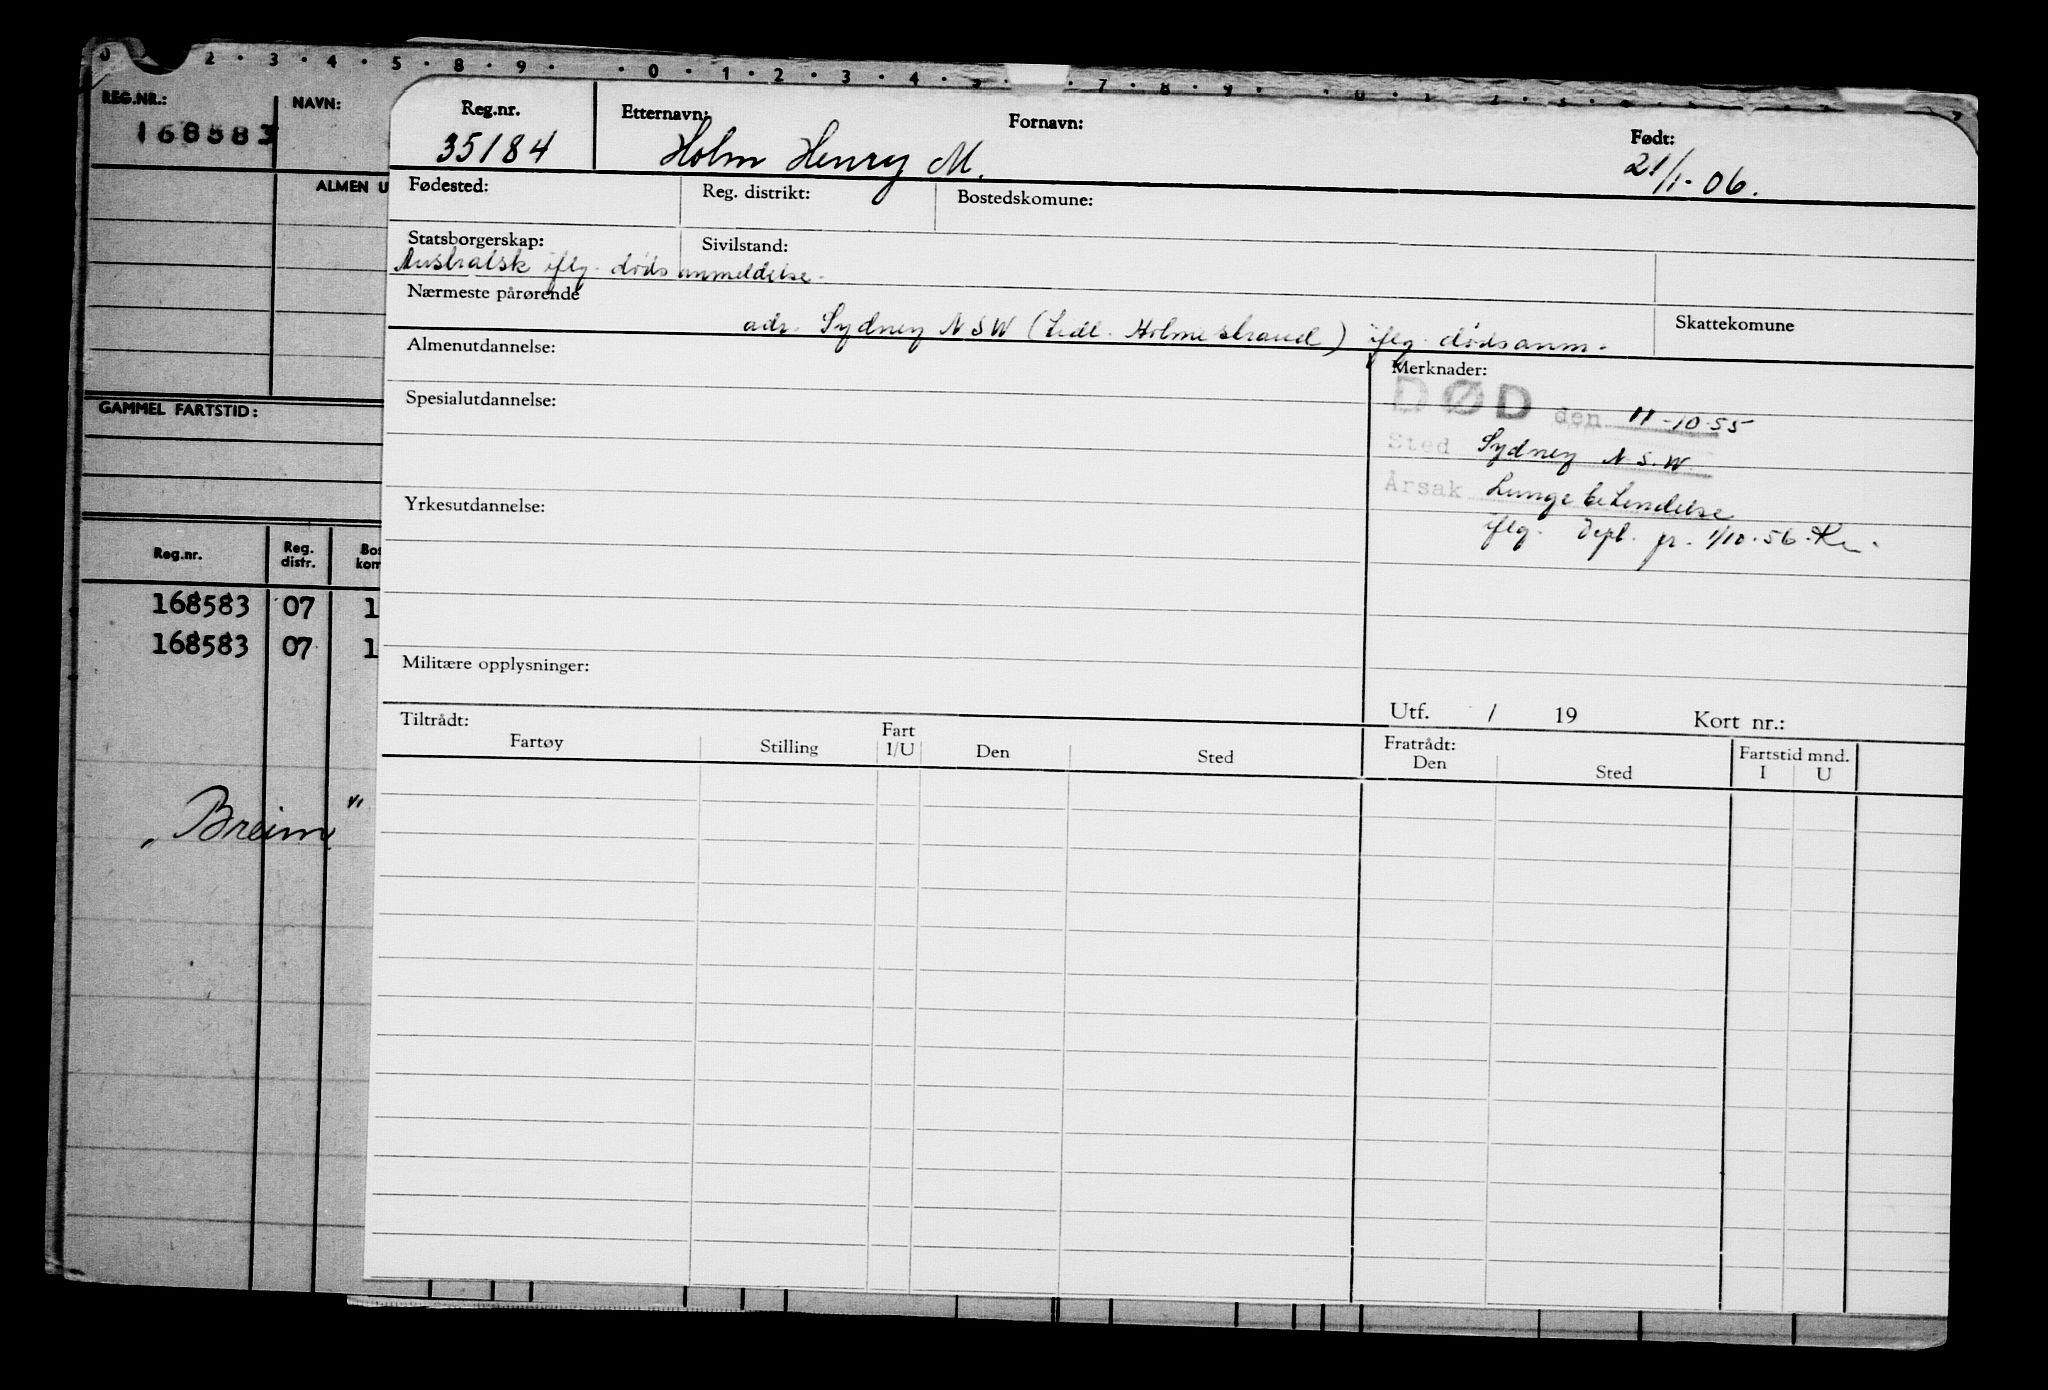 0 2 · 3 · 4 · 5 · 8 · 9 · · 0 · 1 · 2 · 3 · 4 · 5 · · 7 · 8 · 9 ·
REG.NR.:
168583
NAVN:
ALMEN U
GAMMEL FARTSTID:
Reg.nr. Reg. distr. Bos kom
168583 07 1
168583 07 1
„Breim"
Reg.nr. Etternavn: Fornavn: Født:
35184 Holm Henry M. 21/1-06.
Fødested: Reg. distrikt: Bostedskomune:
Statsborgerskap: Sivilstand:
Australsk iflg. dødsanmeldelse.
Nærmeste pårørende
adr. Sydney NSW (Tidl. Holmestrand) iflg. dødsanm. Skattekomune
Almenutdannelse: Merknader:
DØD den 11-10-55
Spesialutdannelse:
Sted Sydney N.S.W.
Årsak Lungebetendelse
Yrkesutdannelse:
iflg. Dept. pr. 1/10-56.
Militære opplysninger:
Utf. / 19 Kort nr.:
Tiltrådt: Fratrådt:
Fartøy Stilling Fart I/U Den Sted Den Sted Fartstid mnd. I U